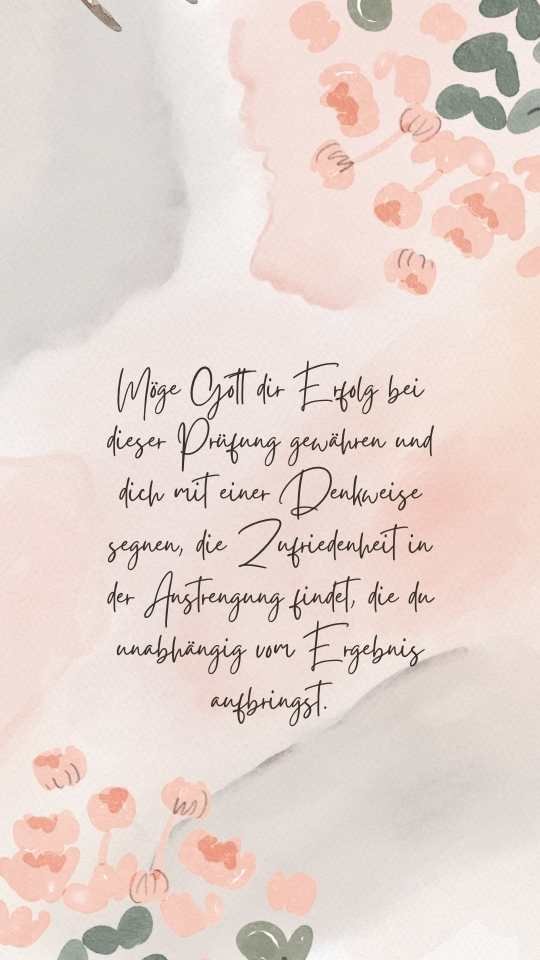 Möge Gott dir Erfolg bei
dieser Prüfung gewähren und
dich mit einer Denkweise
segnen, die Zufriedenheit in
der Anstrengung findet, die du
unabhängig vom Ergebnis
aufbringst.